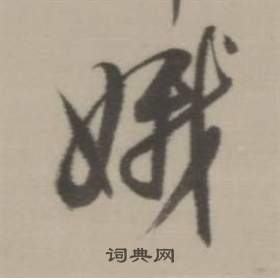 娥
词典网